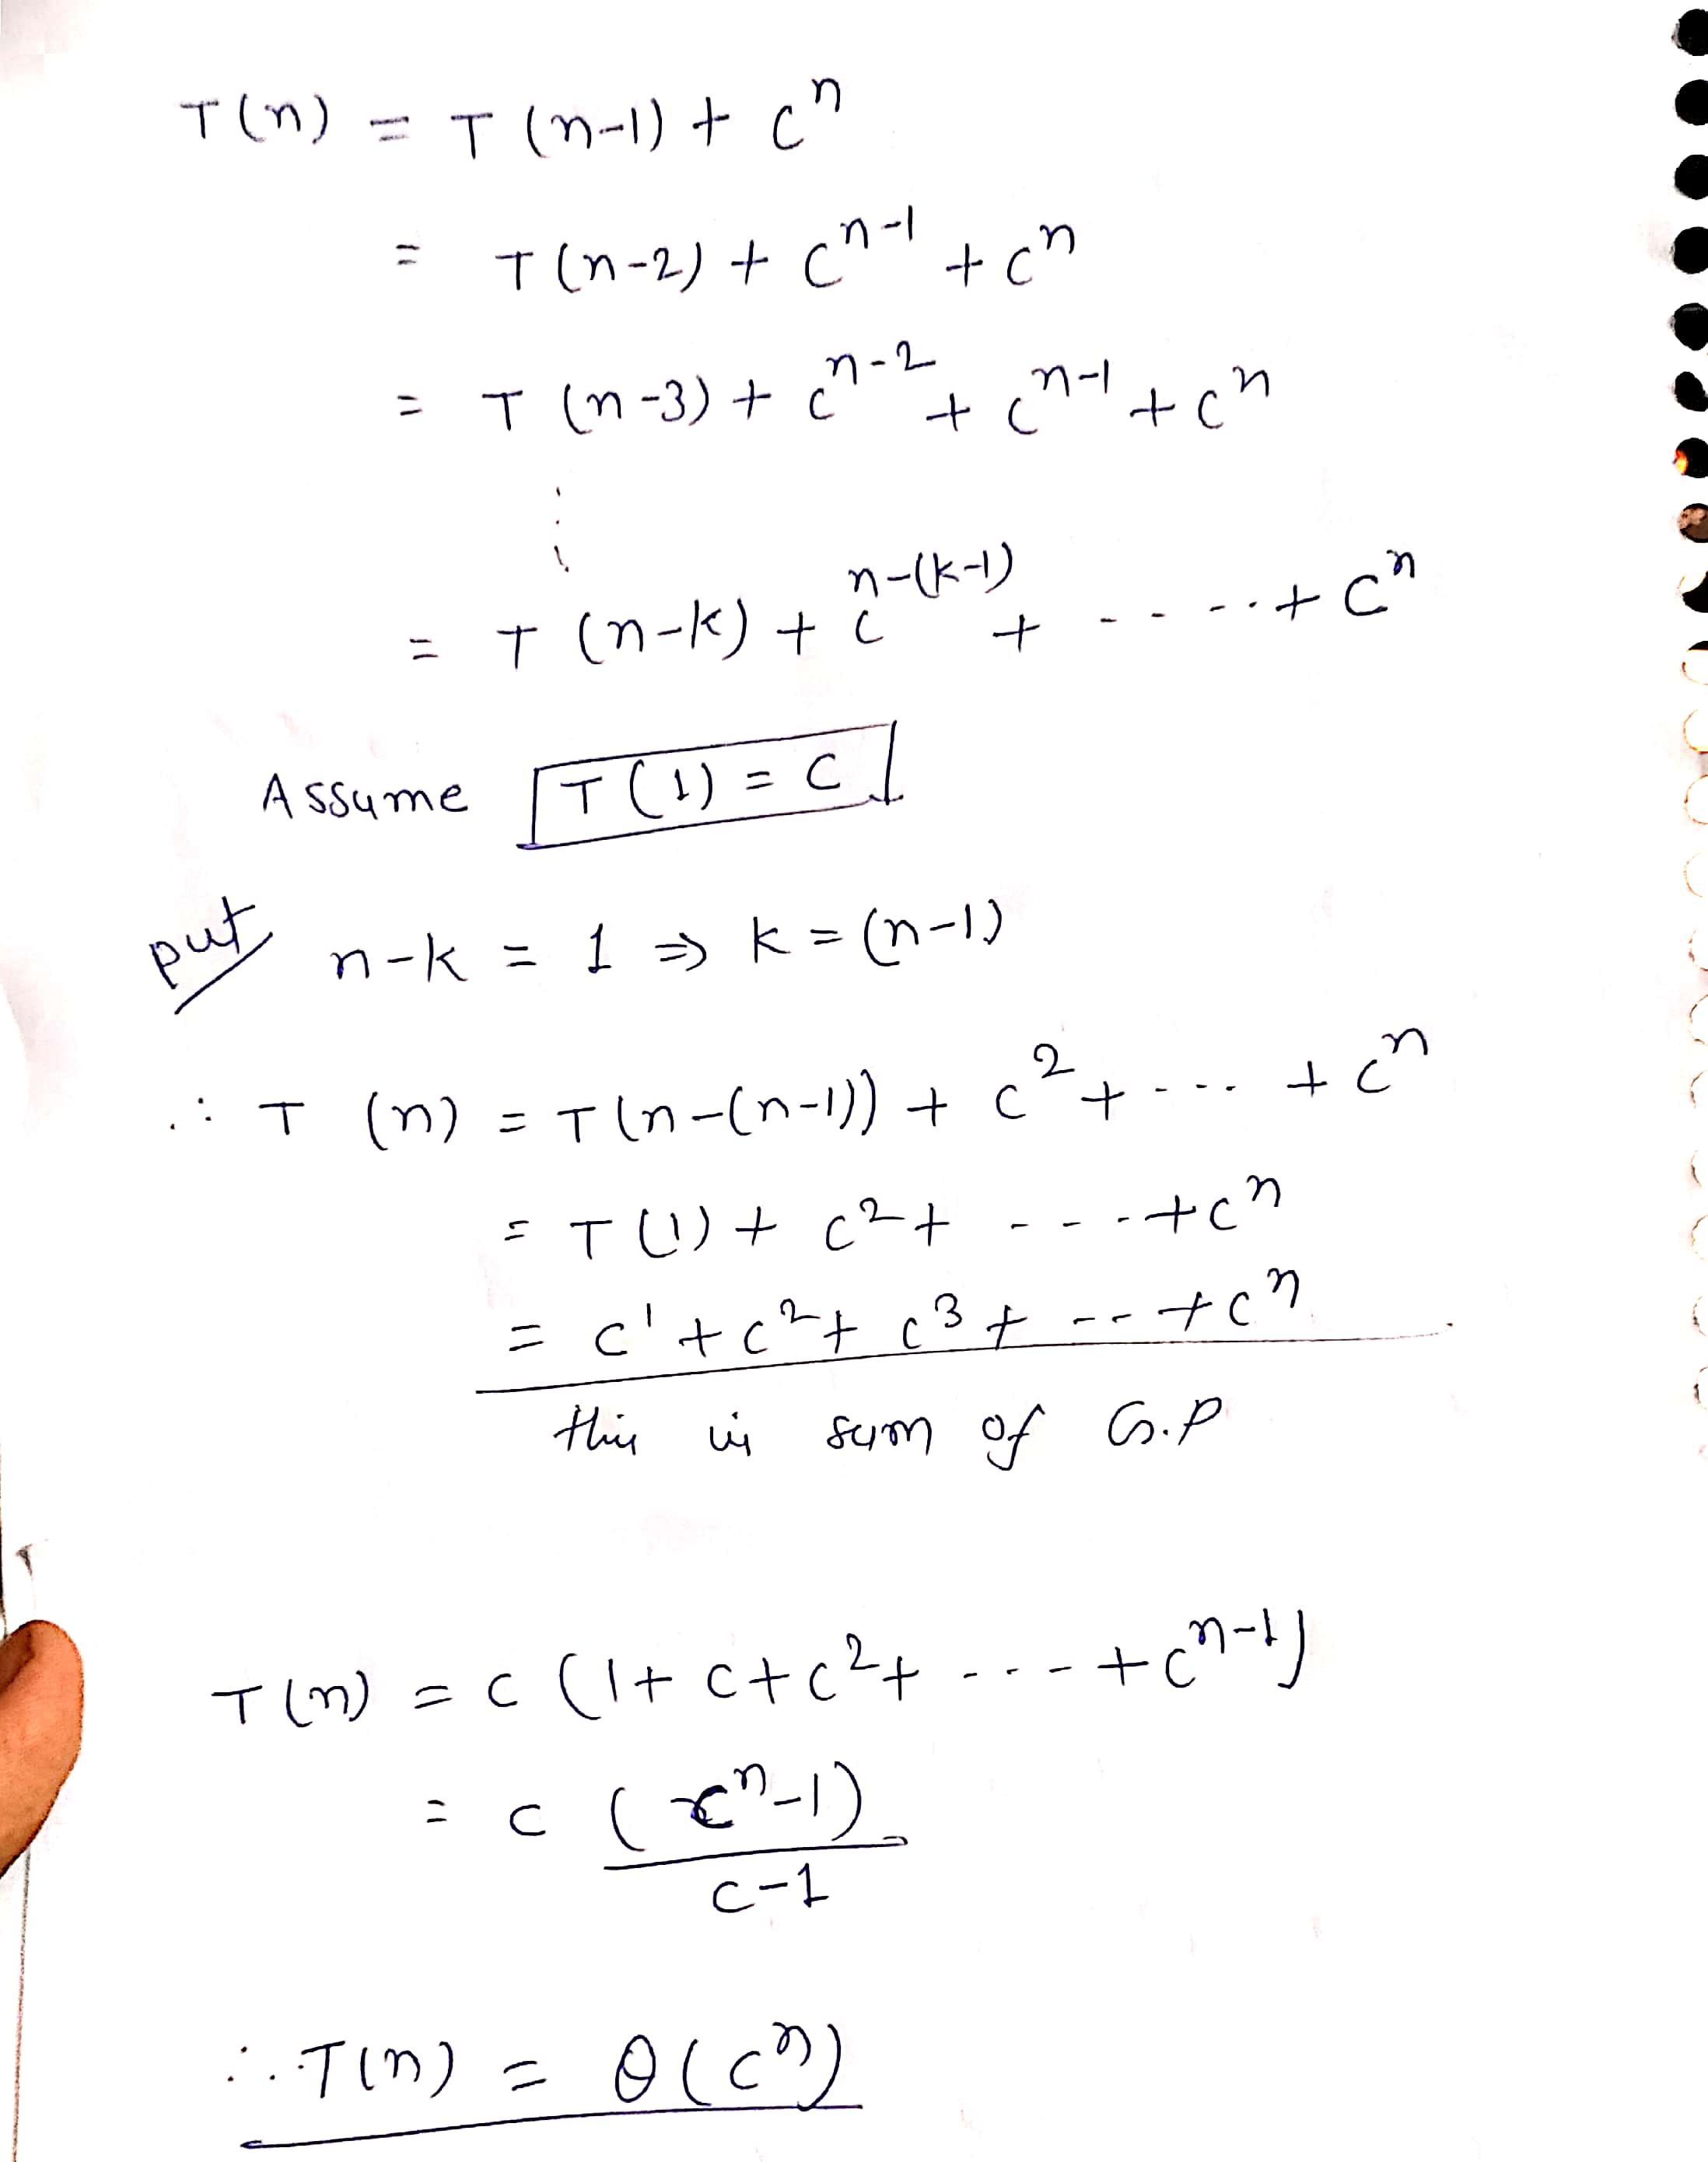 T(n) = T(n-1) + cⁿ
= T(n-2) + cⁿ⁻¹ + cⁿ
= T(n-3) + cⁿ⁻² + cⁿ⁻¹ + cⁿ
⋮
= T(n-k) + c^(n-(k-1)) + - - - .. + cⁿ
Assume T(1) = c
put n-k = 1 ⇒ k = (n-1)
∴ T(n) = T(n-(n-1)) + c² + - - .. + cⁿ
= T(1) + c² + - - - . + cⁿ
= c¹ + c² + c³ + - - + cⁿ
this is sum of G.P
T(n) = c (1 + c + c² + - - . - + cⁿ⁻¹)
= c (cⁿ-1)
c-1
∴ T(n) = θ(cⁿ)